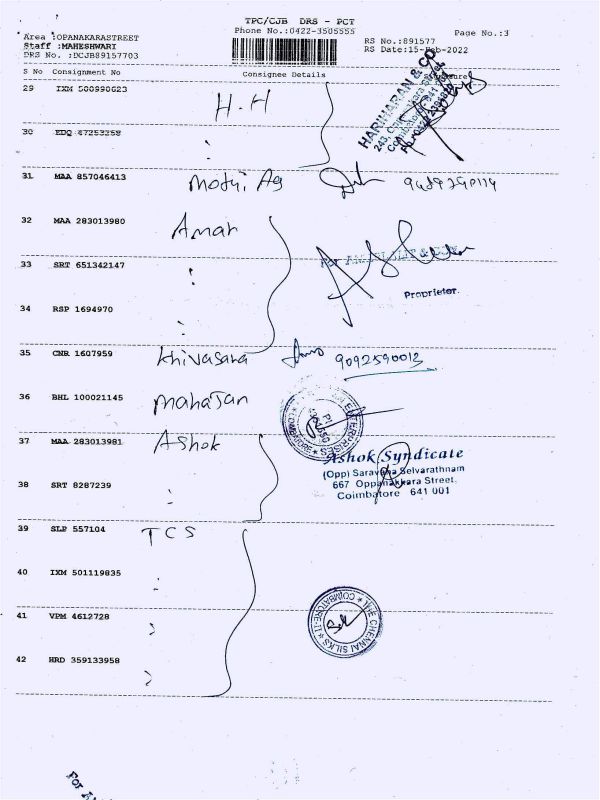 TPC/CJB DRS - PCT
Phone No.:0422-3505555
Page No.:3
Area :OPANAKARASTREET
Staff :MAHESHWARI
DRS No. :DCJB89157703
RS No.:891577
RS Date:15-Feb-2022
S No Consignment No Consignee Details Signature
29 IXM 500990623 H.H
HARIHARAN & CO
30 EDQ 47253258
31 MAA 857046413
32 MAA 283013980 Amar
33 SRT 651342147
Proprietor.
34 RSP 1694970
35 CNR 1607959 Khivasara 9092590013
36 BHL 100021145 Mahajan
ENTERPRISES
37 MAA 283013981 Ashok
Ashok Syndicate
(Opp) Saravana Selvarathnam
667 Oppanakkara Street,
Coimbatore 641 001
38 SRT 8287239
39 SLP 557104 TCS
40 IXM 501119835
41 VPM 4612728
THE CHENNAI SILKS * COIMBATORE-1 *
42 HRD 359133958